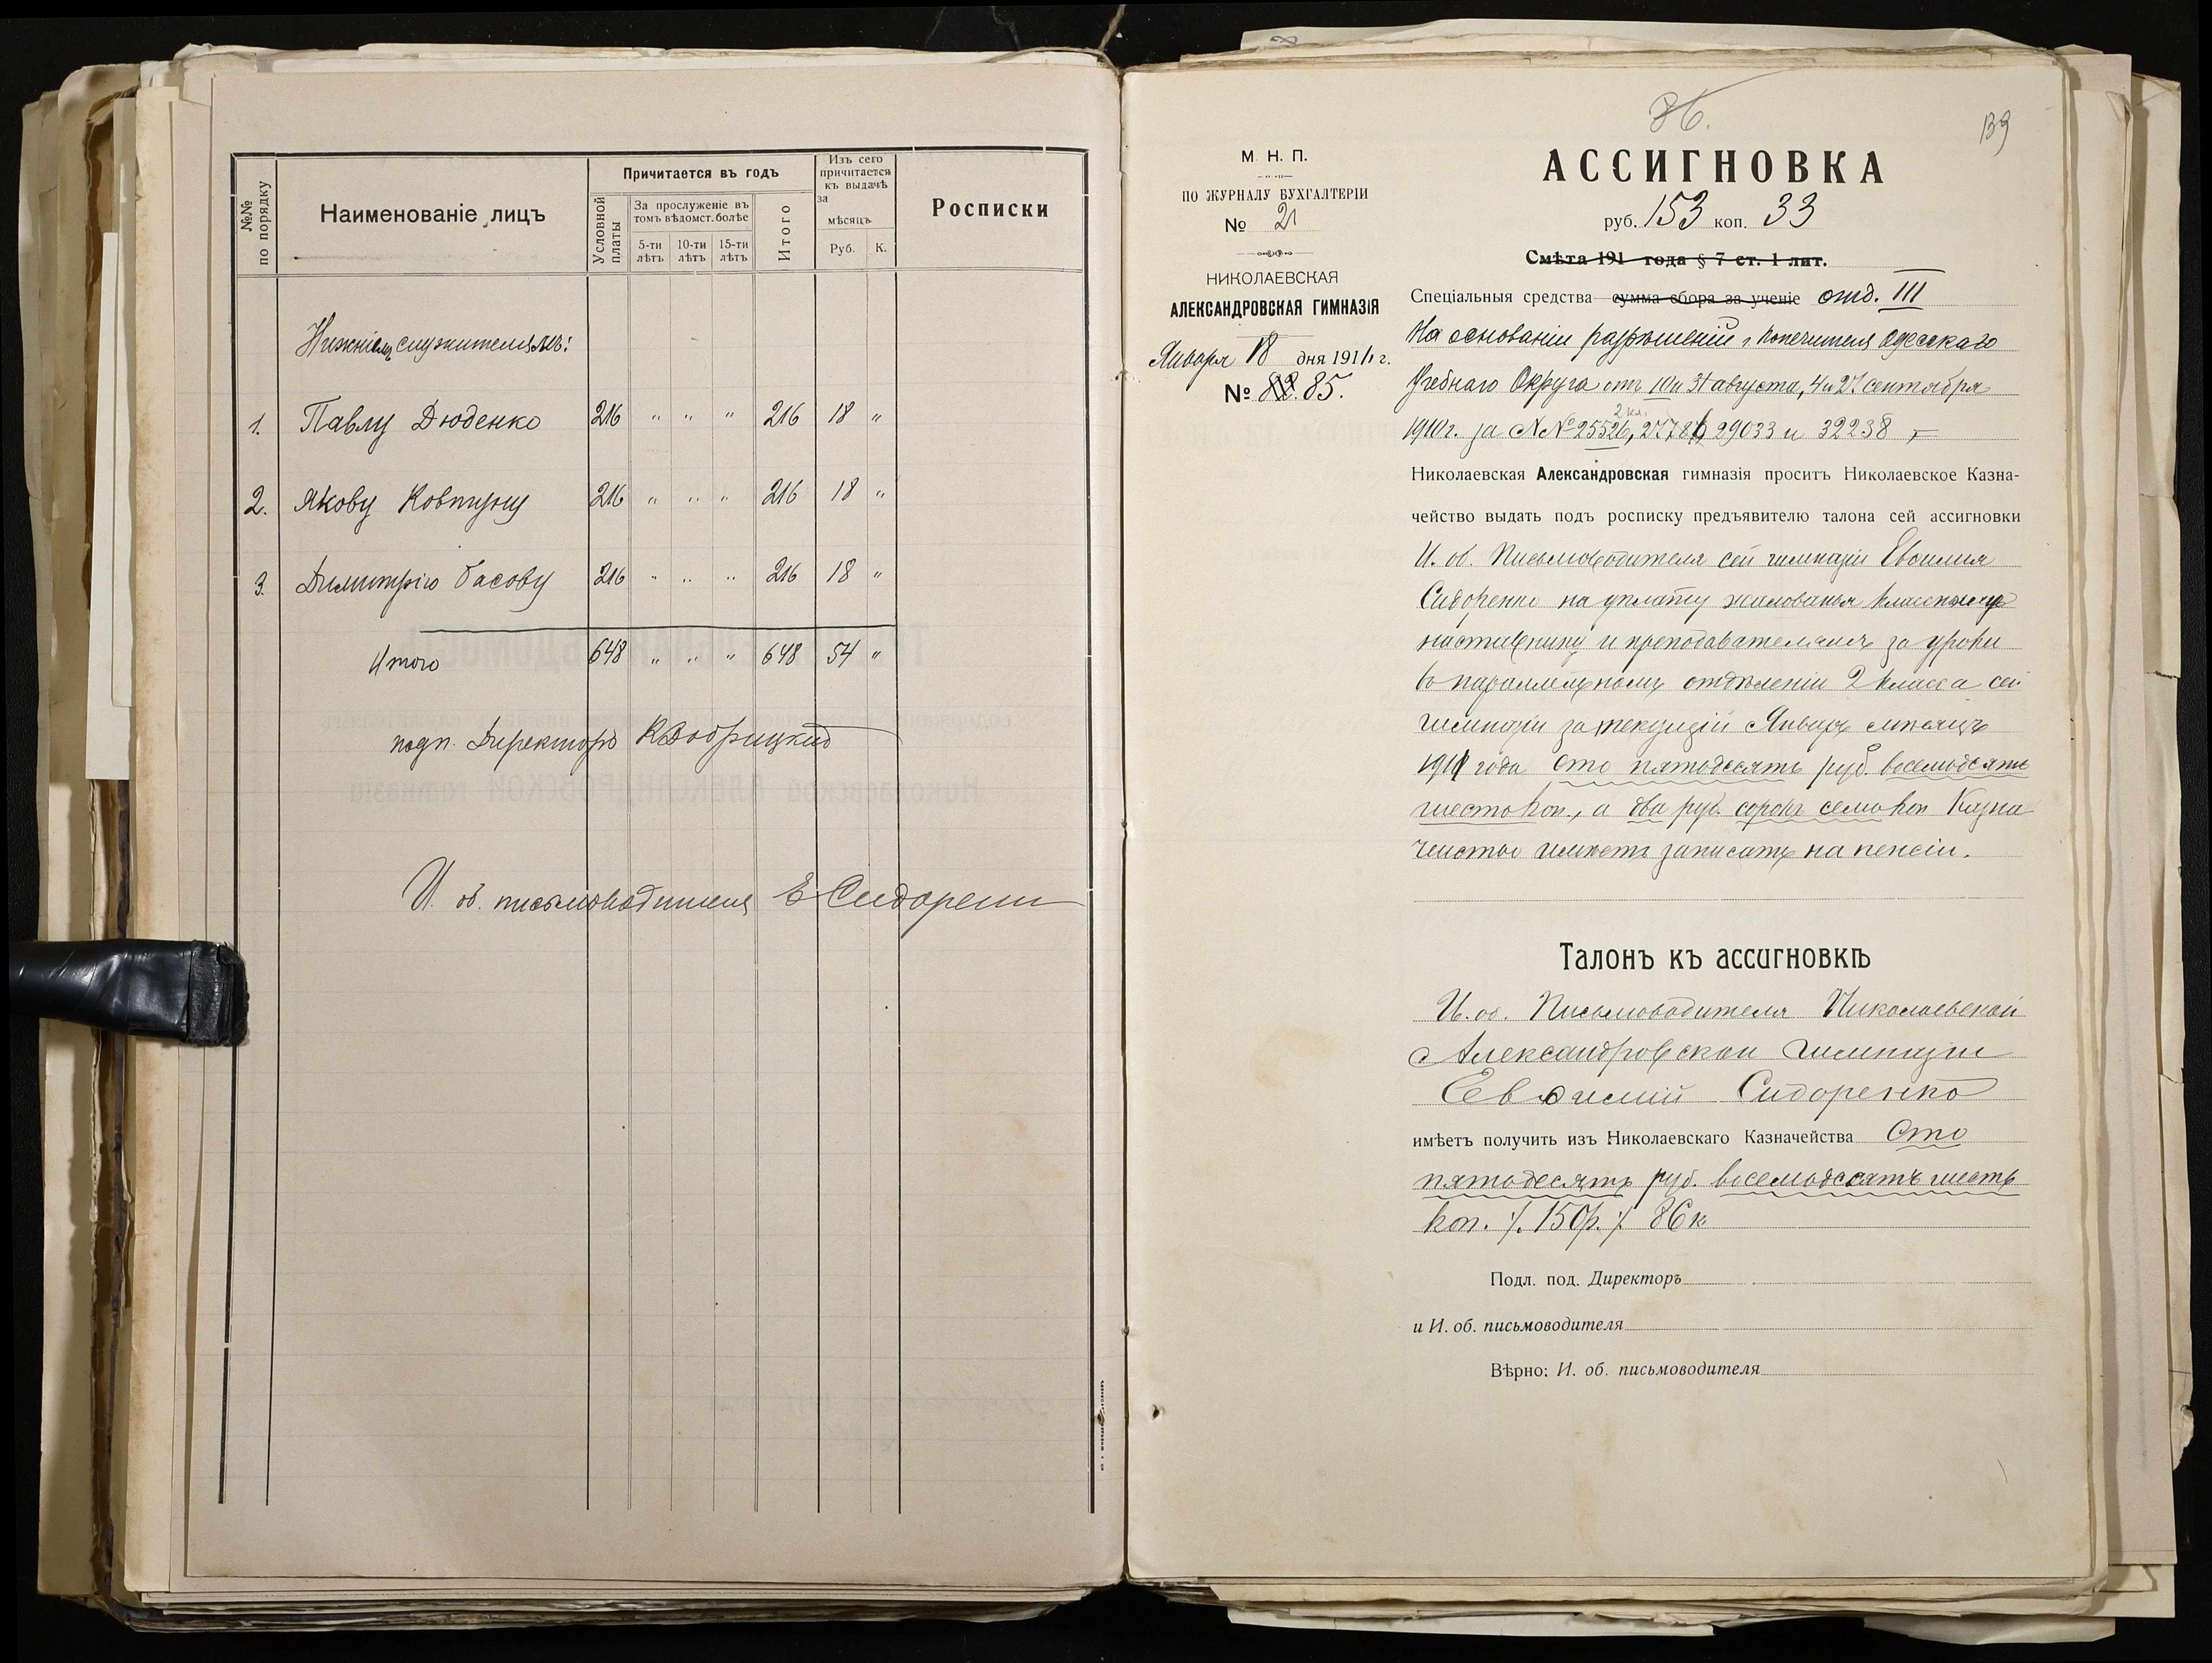 №№ по порядку
Наименованіе лицъ
Причитается въ годъ
Условной платы
За прослуженіе въ
томъ вѣдомст. болѣе
5-ти лѣтъ
10-ти лѣтъ
15-ти лѣтъ
Итого
Изъ сего
причитается
къ выдачѣ
за
мѣсяцъ
Руб. К.
Росписки
Нижнимъ служителямъ:
1. Павлу Дюденко 216 " " " 216 18 "
2. Якову Ковтуну 216 " " " 216 18 "
3. Димитрію Басову 216 " " " 216 18 "
Итого 648 " " " 648 54 "
подп. Директоръ К Добрицкій
И. об. письмоводителя Е Сидоренко
36.
139
М. Н. П.
ПО ЖУРНАЛУ БУХГАЛТЕРІИ
№ 21
НИКОЛАЕВСКАЯ
АЛЕКСАНДРОВСКАЯ ГИМНАЗІЯ
Января 18 дня 1911 г.
№ 82. 85.
АССИГНОВКА
руб. 153 коп. 33
Смѣта 191 года § 7 ст. 1 лит.
Спеціальныя средства сумма сбора за ученіе отд. III
На основаніи разрѣшеній г Попечителя Одесскаго
Учебнаго Округа отъ 10 и 31 августа, 4 и 27 сентября
2 кл.
1910 г. за №№ 25526, 27786 29033 и 32238,
Николаевская Александровская гимназія проситъ Николаевское Казна-
чейство выдать подъ росписку предъявителю талона сей ассигновки
И. об. Письмоводителя сей гимназіи Евѳимія
Сидоренко на уплату жалованья классному
наставнику и преподавателямъ за уроки
въ параллельномъ отдѣленіи 2 класса сей
гимназіи за текущій Январь мѣсяцъ
1911 года сто пятьдесятъ руб. восемьдесятъ
шесть коп., а два руб. сорокъ семь коп Казна
чейство имѣетъ записать на пенсіи.
Талонъ къ ассигновкѣ
И. об. Письмоводителя Николаевской
Александровской гимназіи
Евѳимій Сидоренко
имѣетъ получить изъ Николаевскаго Казначейства Сто
пятьдесятъ руб. восемьдесятъ шесть
коп. ⁒ 150 р. ⁒ 86 к
Подл. под. Директоръ
и И. об. письмоводителя
Вѣрно: И. об. письмоводителя